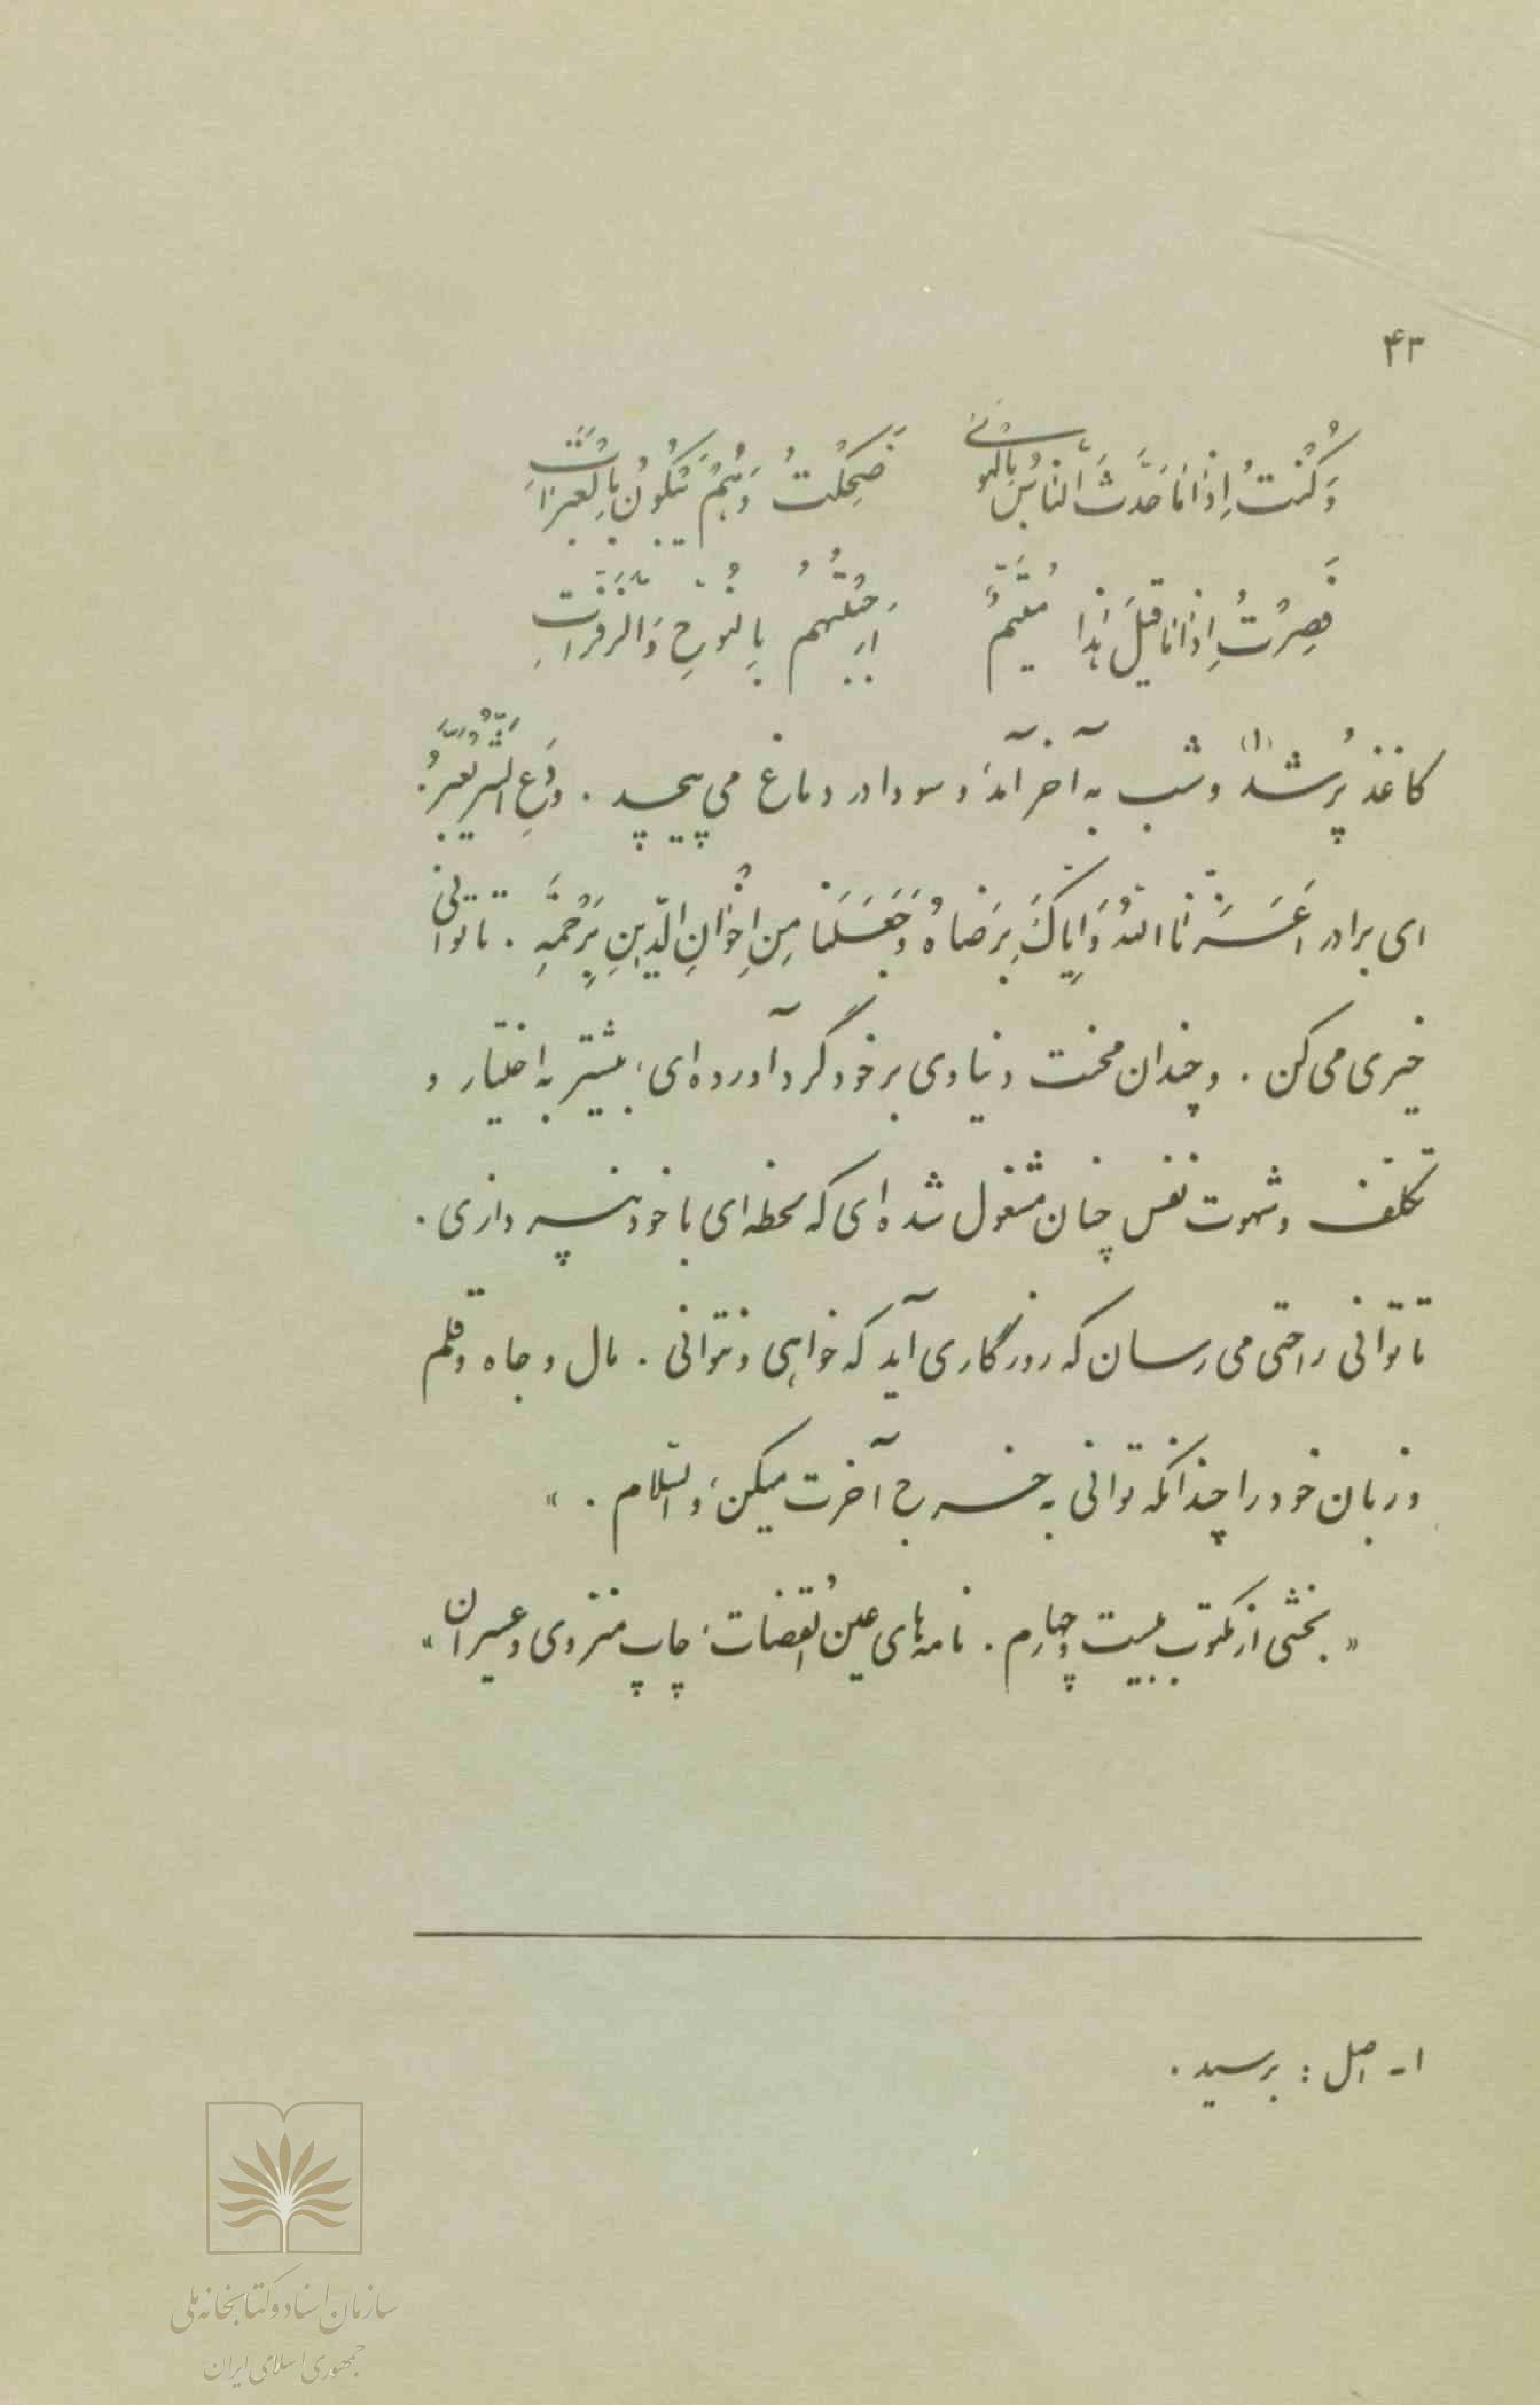 ۴۳
وَكُنْتُ اِذٰا مٰا حَدَّثَ النّٰاسُ بِالْهَوىٰ ضَحِكْتُ وَ هُمْ يَبْكُونَ بِالْعَبَرٰاتِ
فَصِرْتُ اِذٰا مٰا قيلَ هٰذٰا مُتَيَّمٌ بِالنَّوْحِ وَ الزَّفَرٰاتِ
کاغذ پُر شد (۱) و شب به آخر آمد، و سودا در دماغ می پیچد . وَدَعِ الشَّرَّ يَعْبُرُ .
ای برادر اَعَزَّنَا اللهُ وَ اِيّٰاكَ بِرِضٰاهُ وَ جَعَلَنٰا مِنْ اِخْوٰانِ الدّينِ بِرَحْمَتِهِ . تا توانی
خیری می کن . و چندان محنت دنیاوی بر خود گرد آورده ای، بیشتر به اختیار و
تکلّف و شهوت نفس چنان مشغول شده ای که لحظه ای با خود نپردازی .
تا توانی راحتی می رسان که روزگاری آید که خواهی و نتوانی . مال و جاه و قلم
و زبان خود را چندانکه توانی به خرج آخرت میکن، والسّلام . »
« بخشی از مکتوب بیست و چهارم . نامه های عین القُضات، چاپ منزوی و عسیران »
۱ - اصل : برسید .
سازمان اسناد و کتابخانه ملی
جمهوری اسلامی ایران